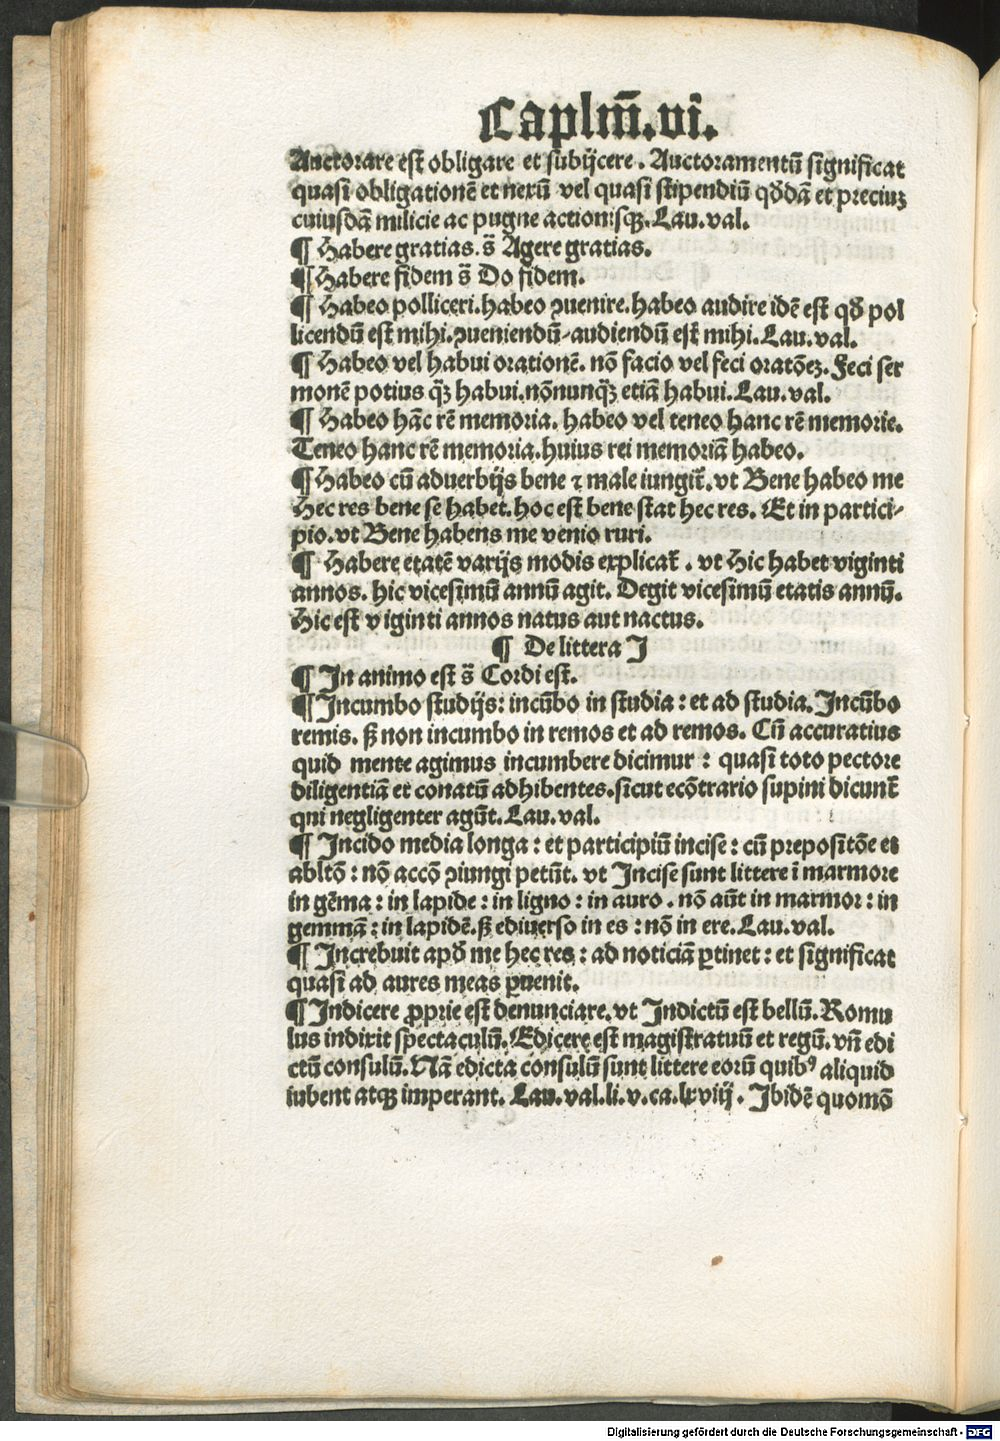 Caplm̄.vi.
Auctorare est obligare et subijcere. Auctoramentū significat
quasi obligationē et nexū vel quasi stipendiū qđdā et preciuꝫ
cuiusdā milicie ac pugne actionisqꝫ. Lau. val.
¶ Habere gratias. s̄ Agere gratias.
¶ Habere fidem s̄ Do fidem.
¶ Habeo polliceri. habeo ꝯuenire. habeo audire idē est qđ pol
licendū est mihi. ꝯueniendū-audiendū est mihi. Lau. val.
¶ Habeo vel habui orationē. nō facio vel feci oratōeꝫ. Feci ser
monē potius qꝫ̄ habui. nōnunqꝫ̄ etiā habui. Lau. val.
¶ Habeo hāc rē memoria. habeo vel teneo hanc rē memorie.
Teneo hanc rē memoria. huius rei memoriā habeo.
¶ Habeo cū aduerbijs bene ⁊ male iungit̄. vt Bene habeo me
Hec res bene se habet. hoc est bene stat hec res. Et in partici-
pio. vt Bene habens me venio ruri.
¶ Habere etatē varijs modis explicat̄. vt Hic habet viginti
annos. hic vicesimū annū agit. Degit vicesimū etatis annū.
Hic est viginti annos natus aut nactus.
¶ De littera I
¶ In animo est s̄ Cordi est.
¶ Incumbo studijs: incūbo in studia: et ad studia. Incūbo
remis. sꝫ non incumbo in remos et ad remos. Cū accuratius
quid mente agimus incumbere dicimur: quasi toto pectore
diligentiā et conatū adhibentes. sicut ecōtrario supini dicunt̄
qui negligenter agūt. Lau. val.
¶ Incido media longa: et participiū incise: cū prepositōe et
abltō: nō accō ꝯiungi petūt. vt Incise sunt littere ī marmore
in gēma: in lapide: in ligno: in auro. nō aūt in marmor: in
gemmā: in lapidē. sꝫ ediuerso in es: nō in ere. Lau. val.
¶ Increbuit apđ me hec res: ad noticiā ꝑtinet: et significat
quasi ad aures meas ꝑuenit.
¶ Indicere ꝓprie est denunciare. vt Indictū est bellū. Romu
lus indixit spectaculū. Edicere est magistratuū et regū. vn̄ edi
ctū consulū. Nā edicta consulū sunt littere eorū quibꝰ aliquid
iubent atqꝫ imperant. Lau. val. li. v. ca. lxviij. Ibidē quomō
Digitalisierung gefördert durch die Deutsche Forschungsgemeinschaft - DFG